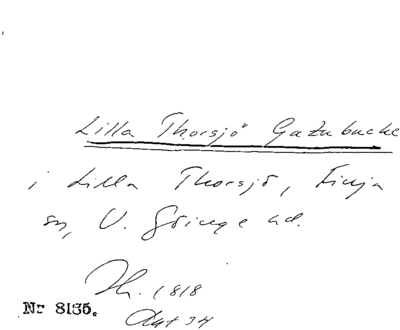 Lilla Thorsjö Gatubacke
i Lilla Thorsjö, Finja
sn, V. Göinge hd.
Th. 1818
Akt 34
Nr 8135.